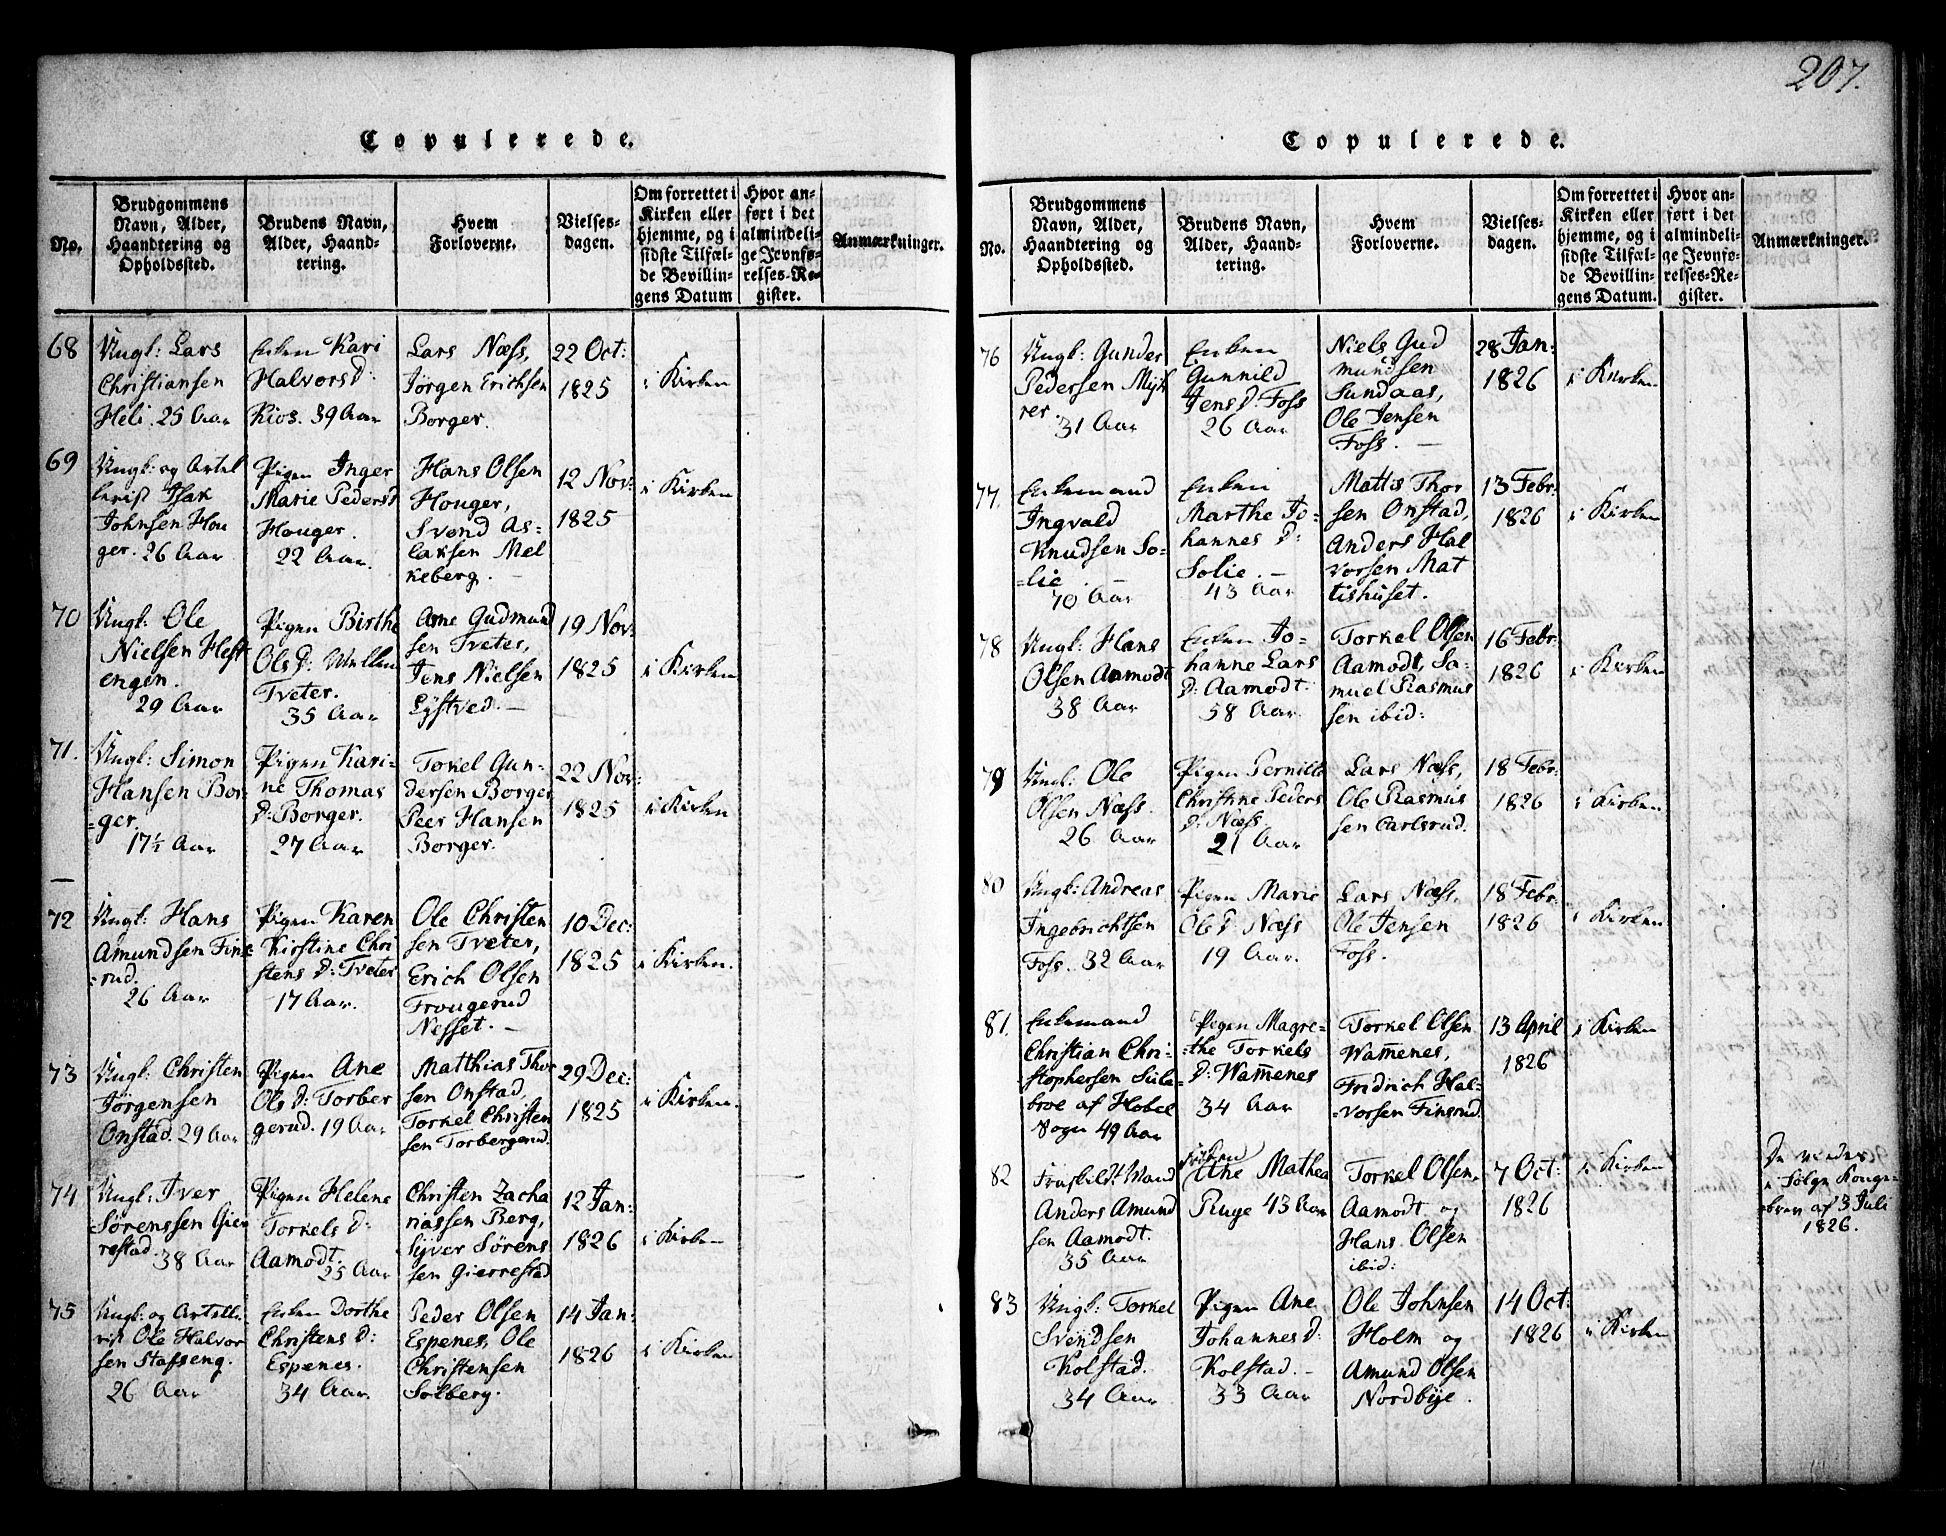 207.
Copulerede.
No.
Brudgommens
Navn, Alder,
Haandtering og
Opholdssted.
Brudens Navn,
Alder, Haand-
tering.
Hvem
Forloverne.
Vielses-
dagen.
Om forrettet i
Kirken eller
hjemme, og i
sidste Tilfæl-
de Bevillin-
gens Datum
Hvor an-
ført i det
almindeli-
ge Jevnfø-
relses-Re-
gister.
Anmærkninger.
68
Ungk: Lars
Christiansen
Heli. 25 Aar
Enken Kari
Halvorsd:
Kios. 39 Aar
Lars Næss,
Jörgen Erichsen
Borger.
22 Oct:
1825
i Kirken
69
Ungk: og Artel
lerist Isak
Johnsen Hou
ger. 26 Aar
Pigen Inger
Marie Pedersd
Houger.
22 Aar.
Hans Olsen
Houger,
Svend As-
laksen Mel
keberg. –
12 Nov:
1825
i Kirken
70
Ungk: Ole
Nielsen Heft
engen.
29 Aar
Pigen Birthe
Ols D: Mellem
Tveter.
35 Aar
Arne Gudmund
sen Tveter,
Jens Nielsen
Lystved. –
19 Nov:
1825
i Kirken
71.
Ungk: Simon
Hansen Bor-
=ger.
17½ Aar
Pigen Kari-
ne Thomas
D: Borger.
27 Aar
Torkel Gun-
dersen Borger
Peer Hansen
Borger.
22 Nov:
1825
i Kirken
72
Ungk: Hans
Amundsen Fins
=rud.
26 Aar
Pigen Karen
Kirstine Chri
stens D: Tveter
17 Aar.
Ole Christen
sen Tveter,
Erich Olsen
Frougerud
Nesset. –
10 Dec:
1825
i Kirken.
73
Ungk: Christen
Jörgensen
Onstad. 29 Aar
Pigen Ane
Ols D: Torber
gerud. 19 Aar
Matthias Thor
sen Onstad,
Torkel Christen
sen Torbergerud.
29 Dec:
1825
i Kirken.
74
Ungk: Iver
Sörenssen Gier
restad.
38 Aar
Pigen Helene
Torkels D:
Aamodt.
25 Aar
Christen Zacha
riassen Berg,
Syver Sörens
sen Gierrestad
12 Jan:
1826
i Kirken
75
Ungk: og Artelle
rist Ole Halvor
sen Stafseng.
26 Aar
Enken Dorthe
Christens D:
Espenes.
34 Aar.
Peder Olsen
Espenes, Ole
Christensen
Solberg.
14 Jan:
1826
i Kirken
Copulerede.
No.
Brudgommens
Navn, Alder,
Haandtering og
Opholdssted.
Brudens Navn,
Alder, Haand-
tering.
Hvem
Forloverne.
Vielses-
dagen.
Om forrettet i
Kirken eller
hjemme, og i
sidste Tilfæl-
de Bevillin-
gens Datum.
Hvor an-
ført i det
almindeli-
ge Jevnfø-
relses-Re-
gister.
Anmærkninger.
76
Ungk: Gunder
Pedersen Myh
rer.
31 Aar
Enken
Gunnild
Jens D: Foss
26 Aar
Niels Gud
mundsen
Sundaas,
Ole Jensen
Foss. –
28 Jan:
1826
i Kirken
77.
Enkemand
Ingvald
Knudsen So-
=lie. –
70 Aar
Enken
Marthe Jo-
hannes D:
Solie. –
43 Aar
Mattis Thor
sen Onstad,
Anders Hal
vorsen Mat
tishuset.
13 Febr:
1826
i Kirken
78
Ungk: Hans
Olsen Aamodt
38 Aar
Enken Jo-
hanne Lars
D: Aamodt.
58 Aar.
Torkel Olsen
Aamodt, Sa-
muel Rasmus
sen ibid:
16 Febr:
1826
i Kirken
79
Ungk: Ole
Olsen Næss.
26 Aar
Pigen Pernille
Christine Peders
D: Næss.
21 Aar
Lars Næss,
Ole Rasmus
sen Carlsrud.
18 Febr:
1826
i Kirken
80
Ungk: Andreas
Ingebrichtsen
Foss. 32 Aar
Pigen Marie
Ole D: Næss
19 Aar.
Lars Næss,
Ole Jensen
Foss.
18 Febr:
1826
i Kirken
81.
Enkemand
Christian Chri-
stophersen Sule-
broe af Hobel
Sogn 49 Aar
Pigen Magre-
=the Torkels
D: Wam̄enes
34 Aar
Torkel Olsen
Wam̄enes,
Fridrich Hal-
=vorsen Finsrud.
13 April
1826
i Kirken
82
Fraskildt Mand
Anders Amund
sen Aamodt.
35 Aar
Athe Mathea
Ruge 43 Aar
Torkel Olsen,
Aamodt og
Hans Olsen
ibid:
7 Oct:
1826
i Kirken
De viedes
i Følge Konge-
brev af 3 Juli
1826.
83
Ungk: Torkel
Svendsen
Kolstad.
34 Aar
Pigen Ane
Johannes D:
Kolstad. –
33 Aar
Ole Johnsen
Holm og
Amund Olsen
Nordbye.
14 Oct:
1826
i Kirken